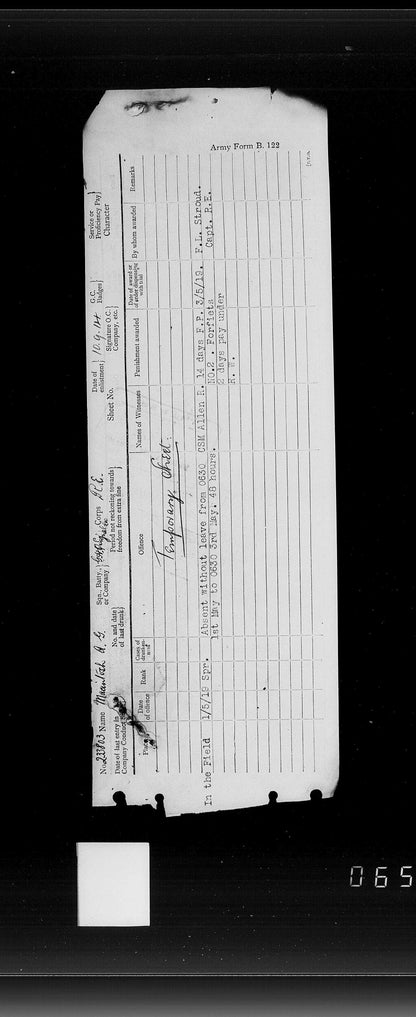 Army Form B. 122
No. 23803 Name Macintosh A. G. Sqn., Batty., or Company Corps R.E. Date of enlistment 10.9.14 G.C. Badges Service or Proficiency Pay
Date of last entry in Company Conduct No. and date of last drunk Period not reckoning towards freedom from extra fine Sheet No. Signature O.C. Company, etc. Character
Place Date of offence Rank Cases of drunkenness Offence Names of Witnesses Punishment awarded Date of award or of order dispensing with trial By whom awarded Remarks
Temporary Sheet.
In the Field 1/5/19 Spr. Absent without leave from 0630 CSM Allen R. 14 days F.P. 3/5/19. F.L. Stroud.
1st May to 0630 3rd May. 48 hours. NO.2 . Forfiets Capt. R.E.
2 days pay under
R. W.
[P.T.O.
065